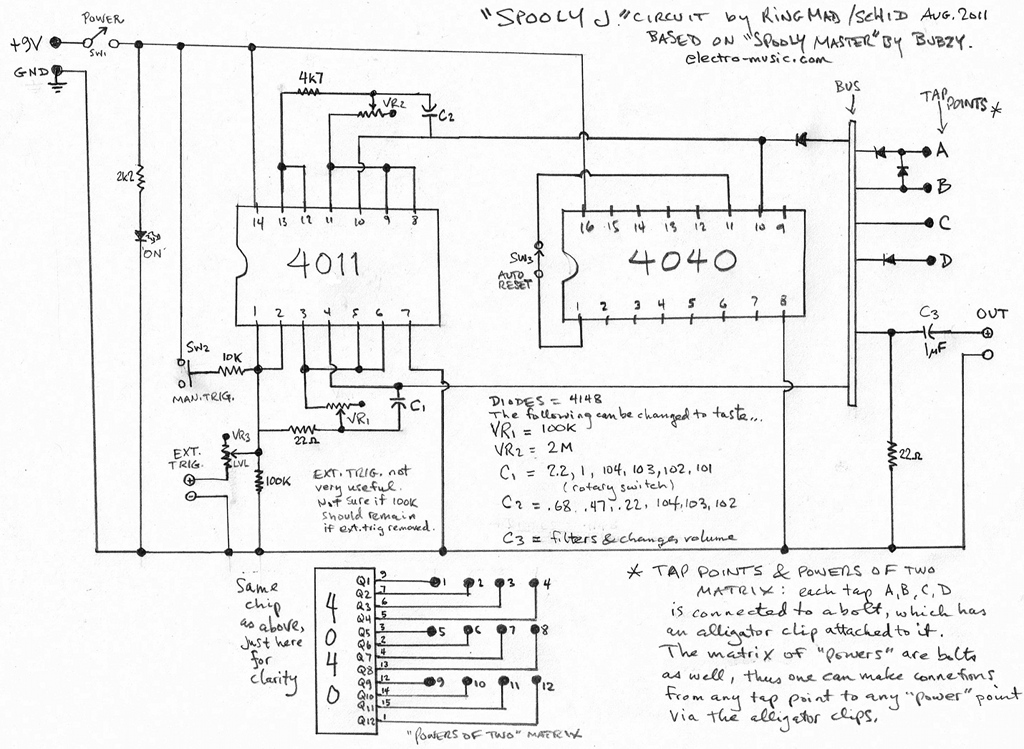 "SPOOLY J." CIRCUIT by RINGMAD/SCHID AUG. 2011
BASED ON "SPOOLY MASTER" BY BUBZY.
electro-music.com
POWER
+9V
SW1
GND
4K7
VR2
C2
BUS
TAP
POINTS *
A
B
C
D
2K2
"ON"
14 13 12 11 10 9 8
4011
1 2 3 4 5 6 7
16 15 14 13 12 11 10 9
4040
1 2 3 4 5 6 7 8
SW3
AUTO
RESET
C3
1µF
OUT
SW2
10K
MAN. TRIG.
VR1
C1
22Ω
VR3
LVL
EXT.
TRIG.
100K
22Ω
EXT. TRIG. not
very useful.
Not sure if 100K
should remain
if ext. trig removed.
DIODES = 4148
The following can be changed to taste...
VR1 = 100K
VR2 = 2M
C1 = 2.2, 1, 104, 103, 102, 101
(rotary switch)
C2 = .68, .47, .22, 104, 103, 102
C3 = filters & changes volume
Same
chip
as above,
just here
for
clarity
4040
Q1 9
Q2 7
Q3 6
Q4 5
Q5 3
Q6 2
Q7 4
Q8 13
Q9 12
Q10 14
Q11 15
Q12 1
1 2 3 4
5 6 7 8
9 10 11 12
"POWERS OF TWO" MATRIX
* TAP POINTS & POWERS OF TWO
MATRIX: each tap A,B,C,D
is connected to a bolt, which has
an alligator clip attached to it.
The matrix of "powers" are bolts
as well, thus one can make connetions
from any tap point to any "power" point
via the alligator clips.